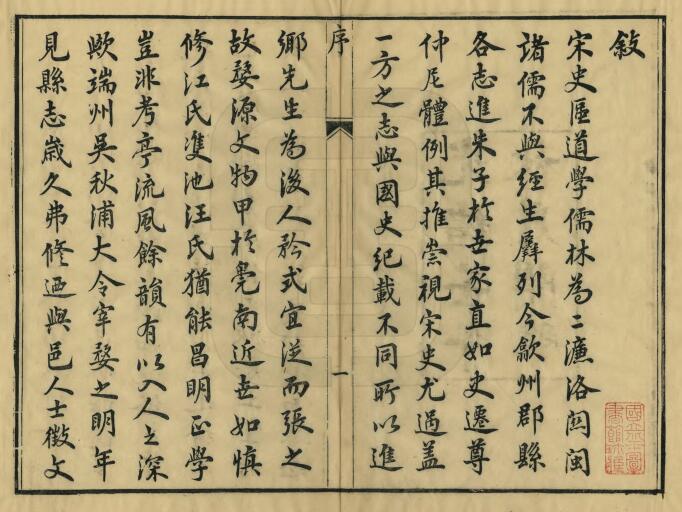 敘
宋史區道學儒林為二濂洛關閩
諸儒不與經生羼列今歙州郡縣
各志進朱子於世家直如史遷尊
仲尼體例其推崇視宋史尤過蓋
一方之志與國史紀載不同所以進
序
一
鄉先生為後人矜式宜從而張之
故婺源文物甲於皖南近世如慎
修江氏雙池汪氏猶能昌明正學
豈非考亭流風餘韻有以入人之深
歟端州吳秋浦大令宰婺之明年
見縣志歲久弗修迺與邑人士徵文